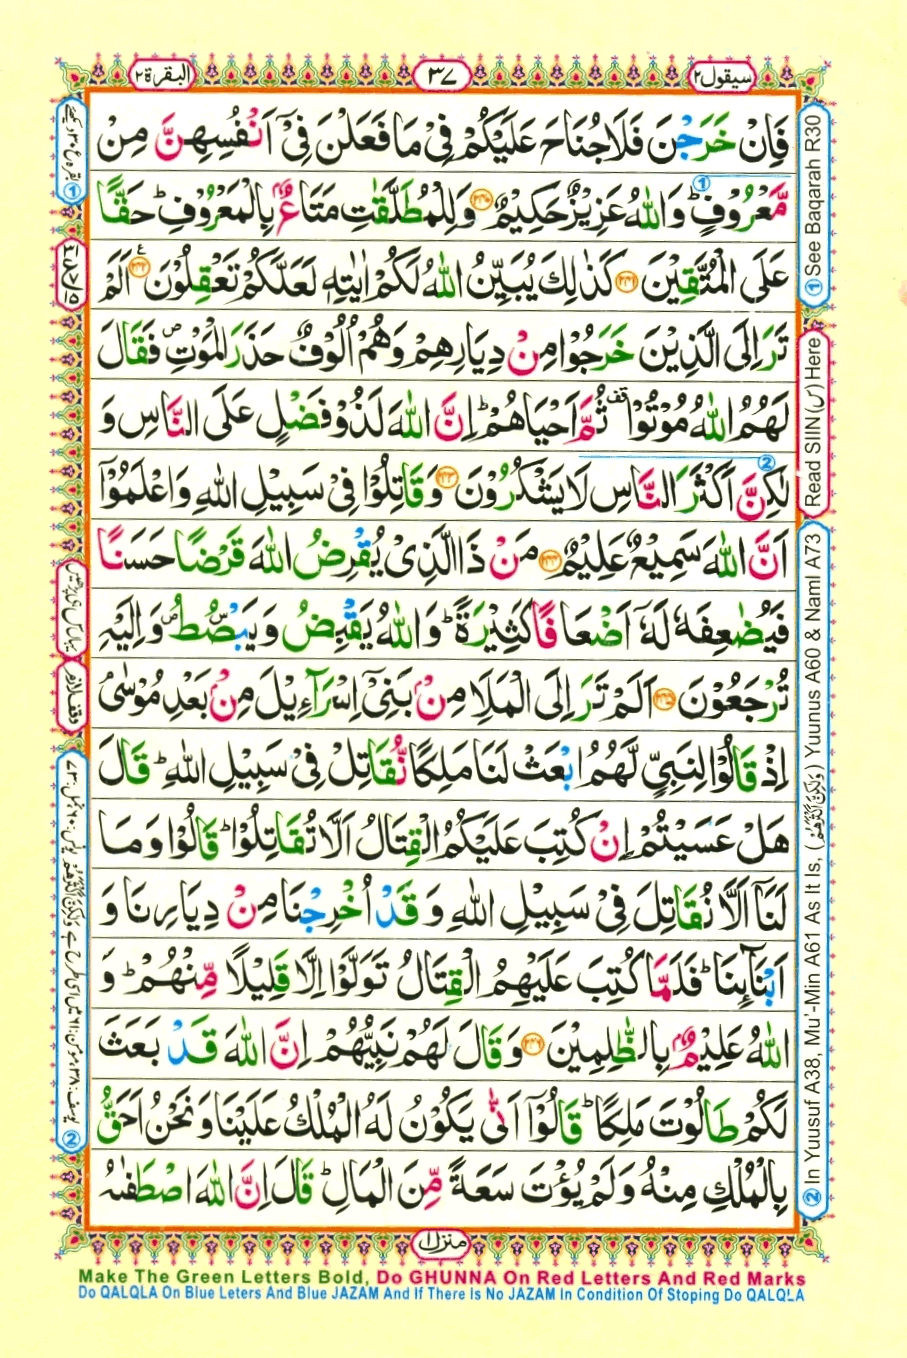 البقرة ٢
٣٧
سيقول ٢
فَاِنْ خَرَجْنَ فَلَا جُنَاحَ عَلَيْكُمْ فِىْ مَا فَعَلْنَ فِىْٓ اَنْفُسِهِنَّ مِنْ
مَّعْرُوْفٍ ؕ وَاللّٰهُ عَزِيْزٌ حَكِيْمٌ ﴿۲۴۰﴾ وَلِلْمُطَلَّقٰتِ مَتَاعٌۢ بِالْمَعْرُوْفِ ؕ حَقًّا
عَلَى الْمُتَّقِيْنَ ﴿۲۴۱﴾ كَذٰلِكَ يُبَيِّنُ اللّٰهُ لَكُمْ اٰيٰتِهٖ لَعَلَّكُمْ تَعْقِلُوْنَ ﴿۲۴۲﴾ اَلَمْ
تَرَ اِلَى الَّذِيْنَ خَرَجُوْا مِنْ دِيَارِهِمْ وَهُمْ اُلُوْفٌ حَذَرَ الْمَوْتِ ۪ فَقَالَ
لَهُمُ اللّٰهُ مُوْتُوْا ۟ ثُمَّ اَحْيَاهُمْ ؕ اِنَّ اللّٰهَ لَذُوْ فَضْلٍ عَلَى النَّاسِ وَ
لٰكِنَّ اَكْثَرَ النَّاسِ لَا يَشْكُرُوْنَ ﴿۲۴۳﴾ وَقَاتِلُوْا فِىْ سَبِيْلِ اللّٰهِ وَاعْلَمُوْٓا
اَنَّ اللّٰهَ سَمِيْعٌ عَلِيْمٌ ﴿۲۴۴﴾ مَنْ ذَا الَّذِىْ يُقْرِضُ اللّٰهَ قَرْضًا حَسَنًا
فَيُضٰعِفَهٗ لَهٗٓ اَضْعَافًا كَثِيْرَةً ؕ وَاللّٰهُ يَقْبِضُ وَيَبْصُۜطُ ۪ وَاِلَيْهِ
تُرْجَعُوْنَ ﴿۲۴۵﴾ اَلَمْ تَرَ اِلَى الْمَلَاِ مِنْۢ بَنِىْٓ اِسْرَآءِيْلَ مِنْۢ بَعْدِ مُوْسٰى
اِذْ قَالُوْا لِنَبِىٍّ لَّهُمُ ابْعَثْ لَنَا مَلِكًا نُّقَاتِلْ فِىْ سَبِيْلِ اللّٰهِ ؕ قَالَ
هَلْ عَسَيْتُمْ اِنْ كُتِبَ عَلَيْكُمُ الْقِتَالُ اَلَّا تُقَاتِلُوْا ؕ قَالُوْا وَمَا
لَنَآ اَلَّا نُقَاتِلَ فِىْ سَبِيْلِ اللّٰهِ وَ قَدْ اُخْرِجْنَا مِنْ دِيَارِنَا وَ
اَبْنَآئِنَا ؕ فَلَمَّا كُتِبَ عَلَيْهِمُ الْقِتَالُ تَوَلَّوْا اِلَّا قَلِيْلًا مِّنْهُمْ ؕ وَ
اللّٰهُ عَلِيْمٌۢ بِالظّٰلِمِيْنَ ﴿۲۴۶﴾ وَقَالَ لَهُمْ نَبِيُّهُمْ اِنَّ اللّٰهَ قَدْ بَعَثَ
لَكُمْ طَالُوْتَ مَلِكًا ؕ قَالُوْٓا اَنّٰى يَكُوْنُ لَهُ الْمُلْكُ عَلَيْنَا وَنَحْنُ اَحَقُّ
بِالْمُلْكِ مِنْهُ وَلَمْ يُؤْتَ سَعَةً مِّنَ الْمَالِ ؕ قَالَ اِنَّ اللّٰهَ اصْطَفٰىهُ
منزل ١
① See Baqarah R30
Read SIIN (س) Here
② In Yuusuf A38, Mu'-Min A61 As It Is, (وَلٰكِنَّ اَكْثَرَهُمْ) Yuunus A60 & Naml A73
Make The Green Letters Bold, Do GHUNNA On Red Letters And Red Marks
Do QALQLA On Blue Leters And Blue JAZAM And If There Is No JAZAM In Condition Of Stoping Do QALQLA